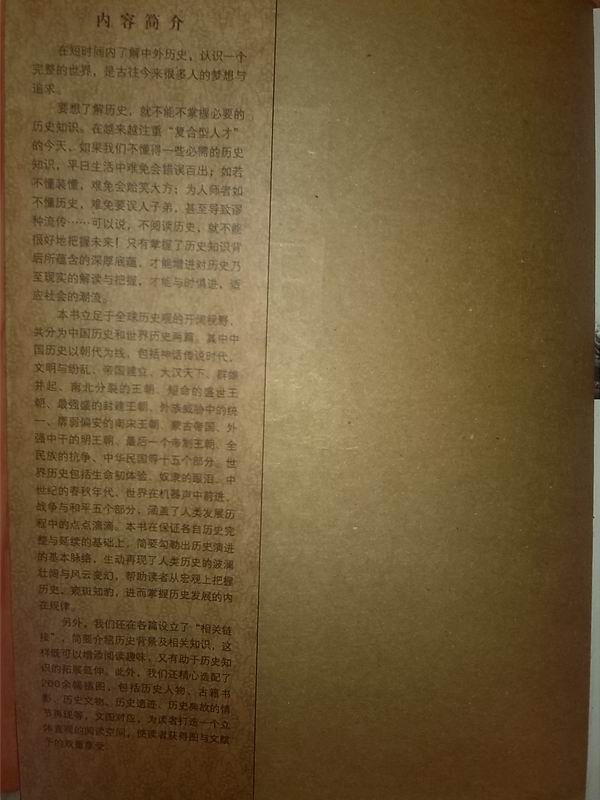 内容简介
在短时间内了解中外历史，认识一个
完整的世界，是古往今来很多人的梦想与
追求。
要想了解历史，就不能不掌握必要的
历史知识。在越来越注重“复合型人才”
的今天，如果我们不懂得一些必需的历史
知识，平日生活中难免会错误百出；如若
不懂装懂，难免会贻笑大方；为人师者如
不懂历史，难免要误人子弟，甚至导致谬
种流传……可以说，不阅读历史，就不能
很好地把握未来！只有掌握了历史知识背
后所蕴含的深厚底蕴，才能增进对历史乃
至现实的解读与把握，才能与时俱进，适
应社会的潮流。
本书立足于全球历史观的开阔视野，
共分为中国历史和世界历史两篇。其中中
国历史以朝代为线，包括神话传说时代、
文明与纷乱、帝国建立、大汉天下、群雄
并起、南北分裂的王朝、短命的盛世王
朝、最强盛的封建王朝、外承威胁中的统
一、孱弱偏安的南宋王朝、蒙古帝国、外
强中干的明王朝、最后一个帝制王朝、全
民族的抗争、中华民国等十五个部分。世
界历史包括生命初体验、奴隶的眼泪、中
世纪的春秋年代、世界在机器声中前进、
战争与和平五个部分，涵盖了人类发展历
程中的点点滴滴。本书在保证各自历史完
整与延续的基础上，简要勾勒出历史演进
的基本脉络，生动再现了人类历史的波澜
壮阔与风云变幻，帮助读者从宏观上把握
历史，窥斑知豹，进而掌握历史发展的内
在规律。
另外，我们还在各篇设立了“相关链
接”，简要介绍历史背景及相关知识，这
样既可以增添阅读趣味，又有助于历史知
识的拓展延伸。此外，我们还精心选配了
200余幅插图，包括历史人物、古籍书
影、历史文物、历史遗迹、历史典故的情
节再现等，文图对应，为读者打造一个立
体直观的阅读空间，使读者获得图与文赋
予的双重享受。